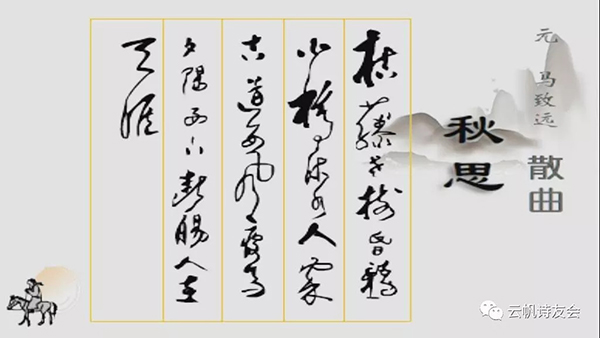 元 马致远
散曲
秋思
枯藤老樹昏鴉
小橋流水人家
古道西風瘦馬
夕陽西下斷腸人在
天涯
云帆诗友会